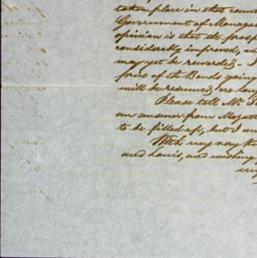 taken place in that coun
Government of Manage
opinion is that the prosp
considerably improved, a
may yet be rewarded. I
price of the Bonds going
will be resumed, no lon
Please tell Mr. S
an answer from Mazat
to be filled up, but I a
With my very k
and Louis, and wishing
my